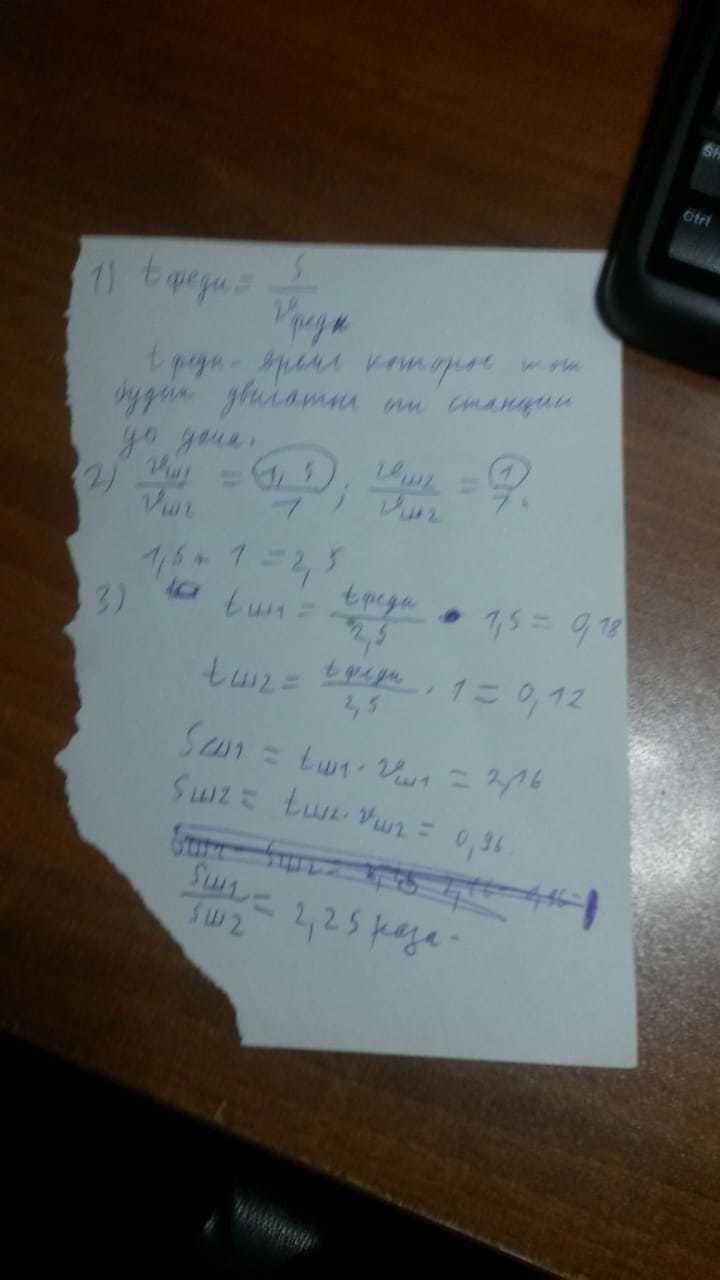 Sh
Ctrl
1) t феди = S / υ феди
t феди - время которое он
будет двигаться от станции
до дома.
2) υш1 / υш2 = 1,5 / 1 ; υш2 / υш2 = 1 / 1.
1,5 + 1 = 2,5
3) tш1 = t феди / 2,5 · 1,5 = 0,18
tш2 = t феди / 2,5 · 1 = 0,12
Sш1 = tш1 · υш1 = 2,16
Sш2 = tш2 · υш2 = 0,96.
Sш1 / Sш2 = 2,25 раза.